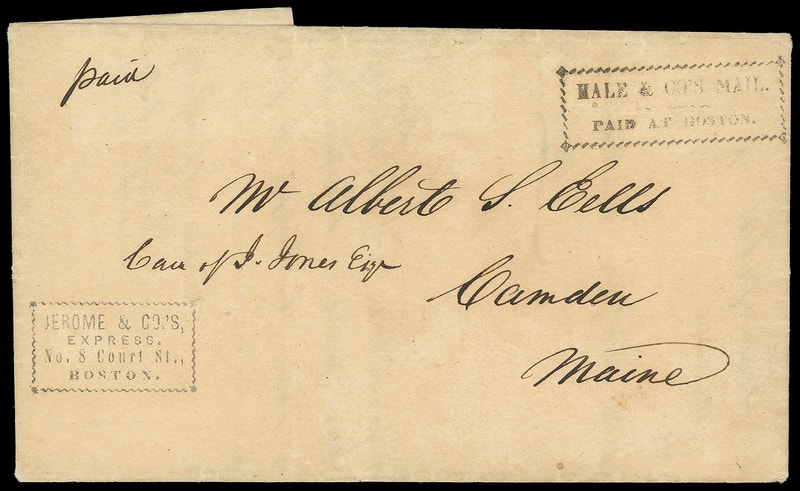 paid
HALE & CO'S MAIL.
PAID AT BOSTON.
Mr Albert S. Eells
Care of J. Jones Esqr
Camden
Maine
JEROME & CO.'S,
EXPRESS.
No. 8 Court St.,
BOSTON.